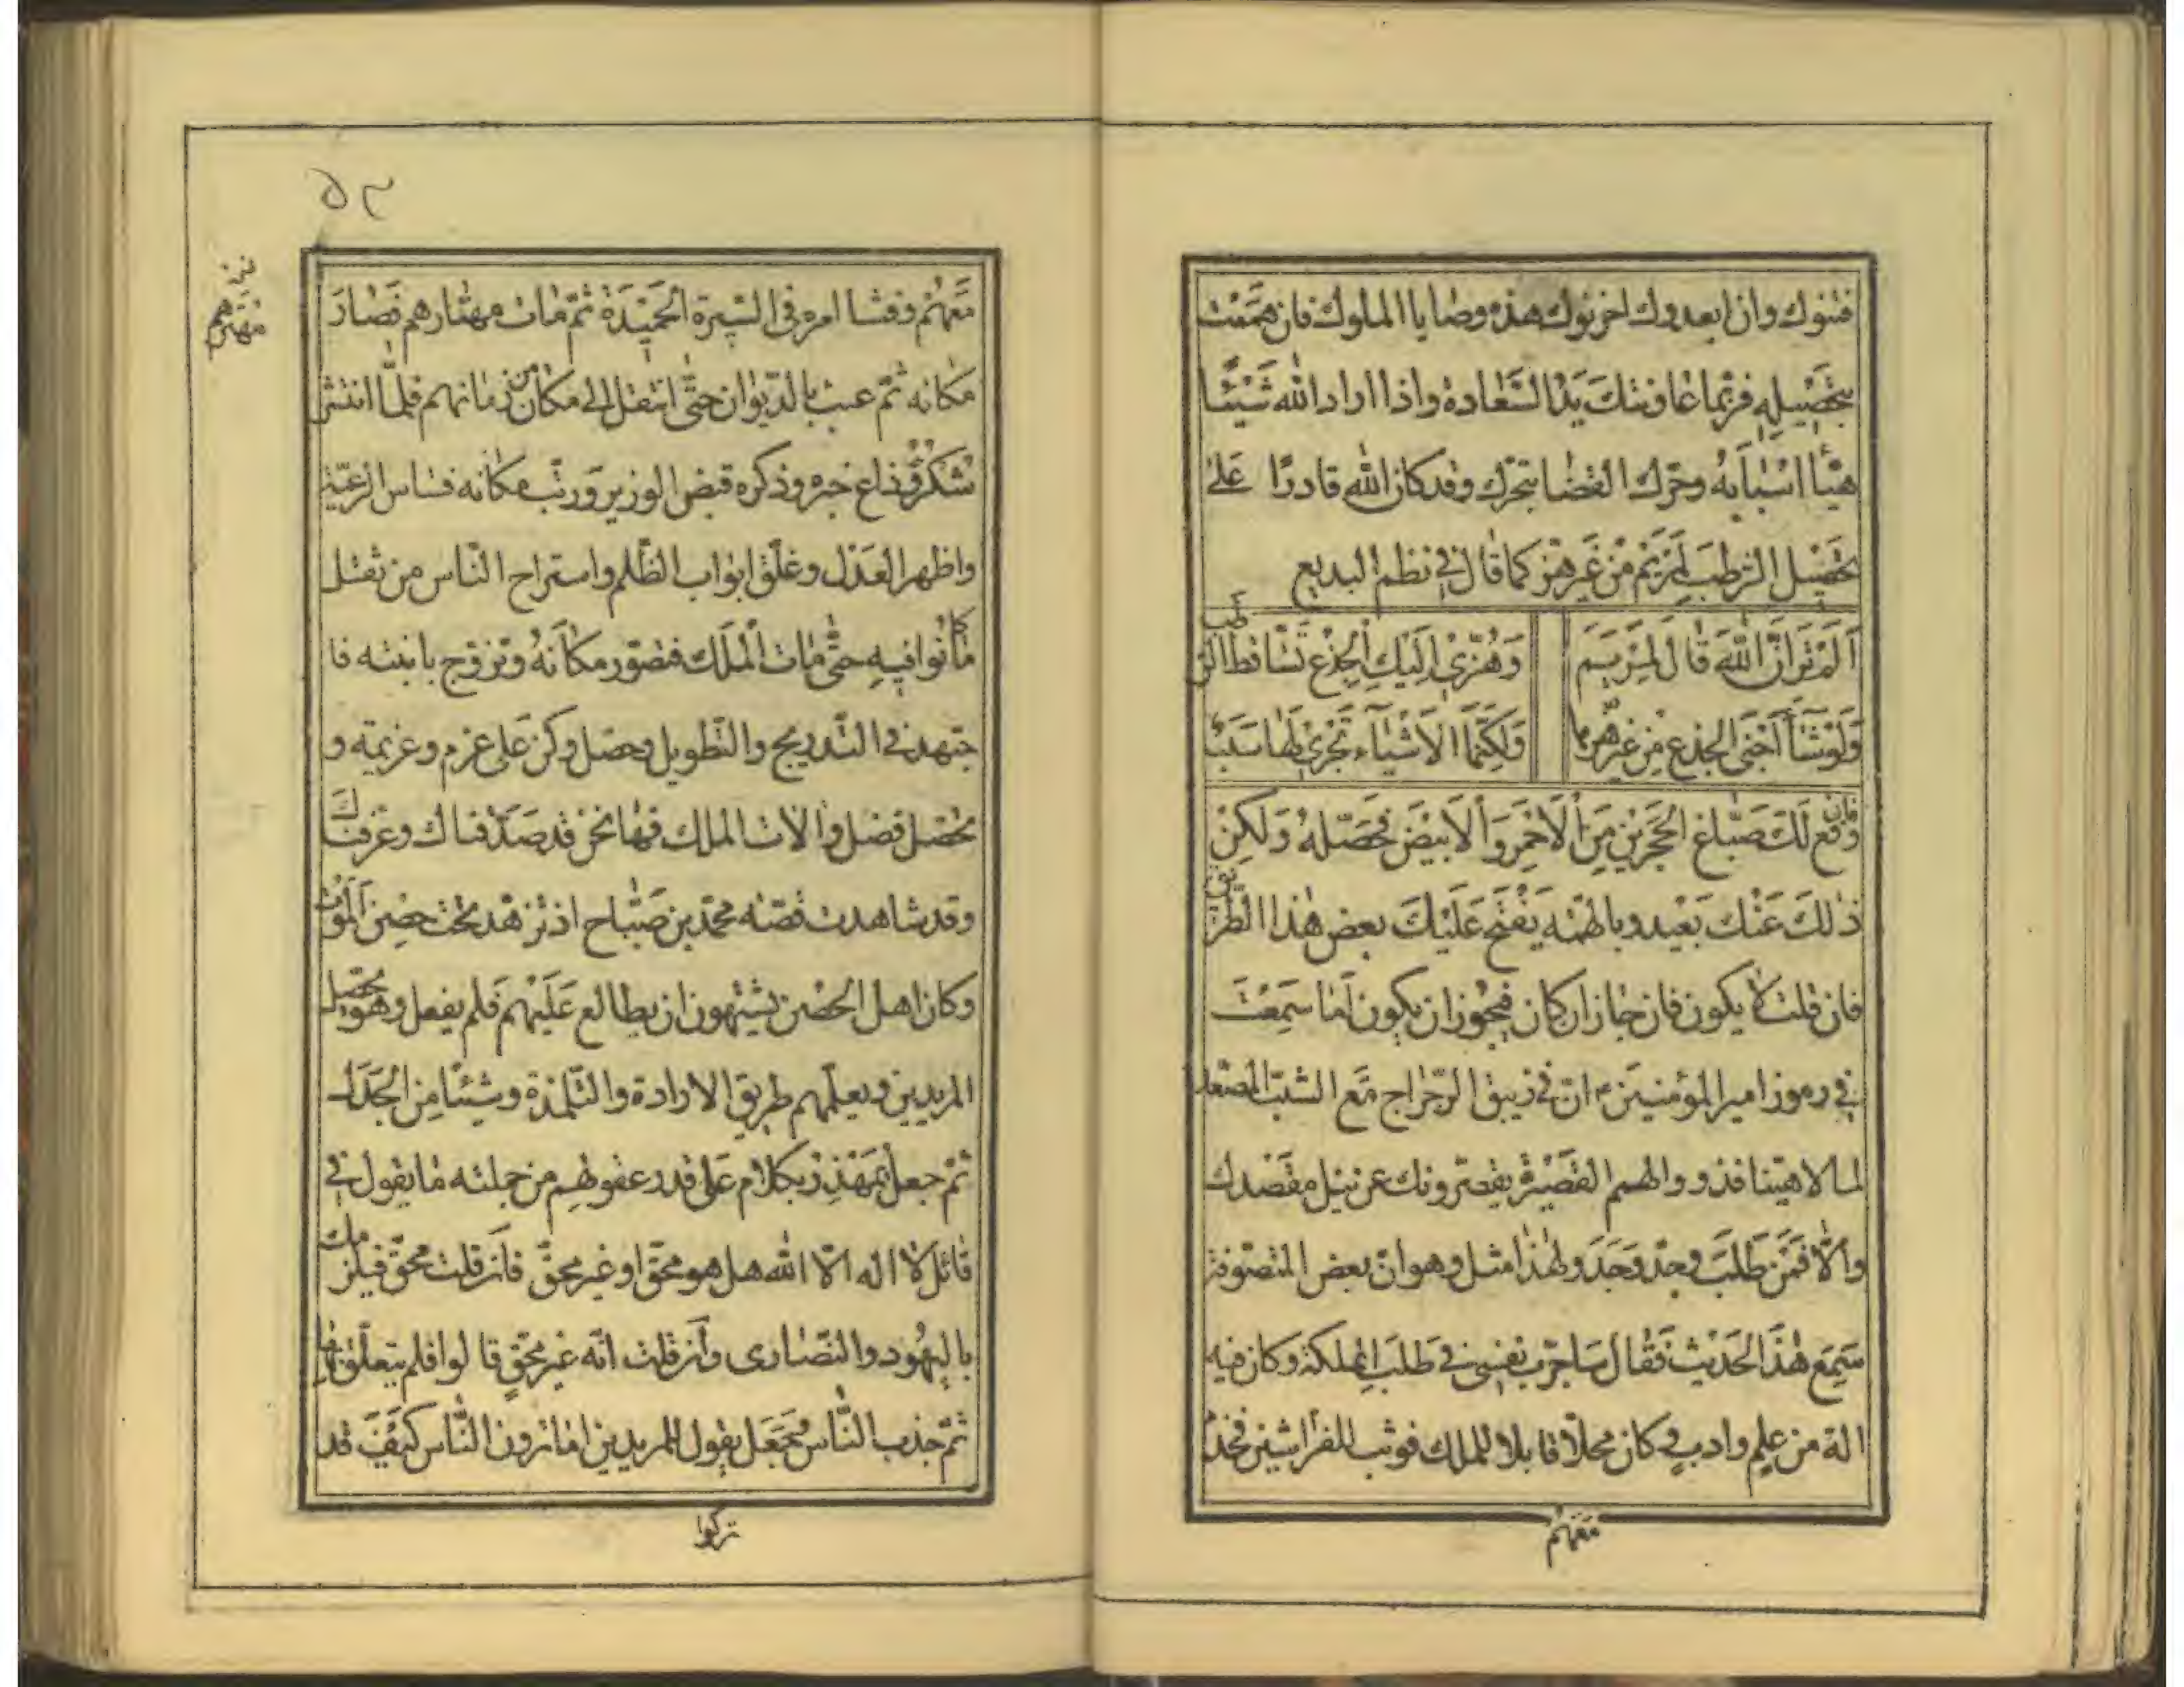 فتنوك وان ابعدوك احزنوك هذه وصايا الملوك فان هممت
بتحصيله فربما عاونتك يد السعادة واذا اراد الله شيئا
هيّأ اسبابه وحرّك القضا بتحرك وقد كان الله قادرًا على
تحصيل الرطب لمريم من غير هز كما قال في نظم البديع
الم تر ان الله قال لمريم
وهزي اليك الجذع تساقط الرطب
ولو شاء اجنى الجذع من غير هزها
ولكنما الاشياء تجري لها سبب
فان وقع لك صباغ الحجرين من الاحمر والابيض فحصله ولكن
ذلك عنك بعيد وبالهمّه يفتح عليك بعض هذا الطريق
فان قلت لا يكون فان جاز ان كان فيجوز ان يكون اما سمعت
في رموز امير المؤمنين ان في زيبق الرجراج مع الشبّ المصعد
لمالا هيّنا فخذو والهمم القصيرة يقصرونك عن نيل مقصدك
والّا فمن طلب وجدّ وجد ولهذا مثل وهو ان بعض المتصوفة
سمع هذا الحديث فقال ساجرّب نفسي في طلب المملكة وكان فيه
الة من علم وادب وكان محلّا قابلا للملك فوثب للفراشين فخدم
معهم
۵۲
مهترهم
معهم وفشا امره في السيرة الحميدة ثمّ مات مهتارهم فصار
مكانه ثمّ عبث بالديوان حتى انتقل الى مكان من زمانهم فلمّا انتشر
شكره وذاع خبره وذكره قبض الوزير ورتّب مكانه فساس الرعيّة
واظهر العدل وغلّق ابواب الظّلم واستراح النّاس من ثقل
ما كانوا فيه حتّى مات الملك فتصوّر مكانه وتزوّج بابنته فا
جتهد في التدريج والتّطويل وحصّل وكن على عزم وعزيمة و
تحصّل فضل والات الملك فها نحن قد صدّقناك وعرفناك
وقد شاهدت قصّة محمّد بن صبّاح اذ تزهّد تحت حصن الموت
وكان اهل الحصن يشتهون ان يطالع عليهم فلم يفعل وهو يحصّل
المريدين ويعلّمهم طريق الارادة والتّلمذة وشيئا من الجدل
ثمّ جعل يمهّد بكلام على قدر عقولهم من جملته ما يقول في
قائل لا اله الّا الله هل هو محقّ او غير محقّ فان قلت محقّ فيلزمك
باليهود والنّصارى وان قلت انّه غير محقّ قالوا فلم يتعلّق بها
ثمّ جذب النّاس فجعل يقول للمريدين اما ترون النّاس كيف قد
تركوا